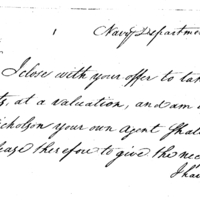 Navy Departme
I close with your offer to tak
ts, at a valuation, and am
icholson your own agent Shall
ease therefore to give the nec
I ha